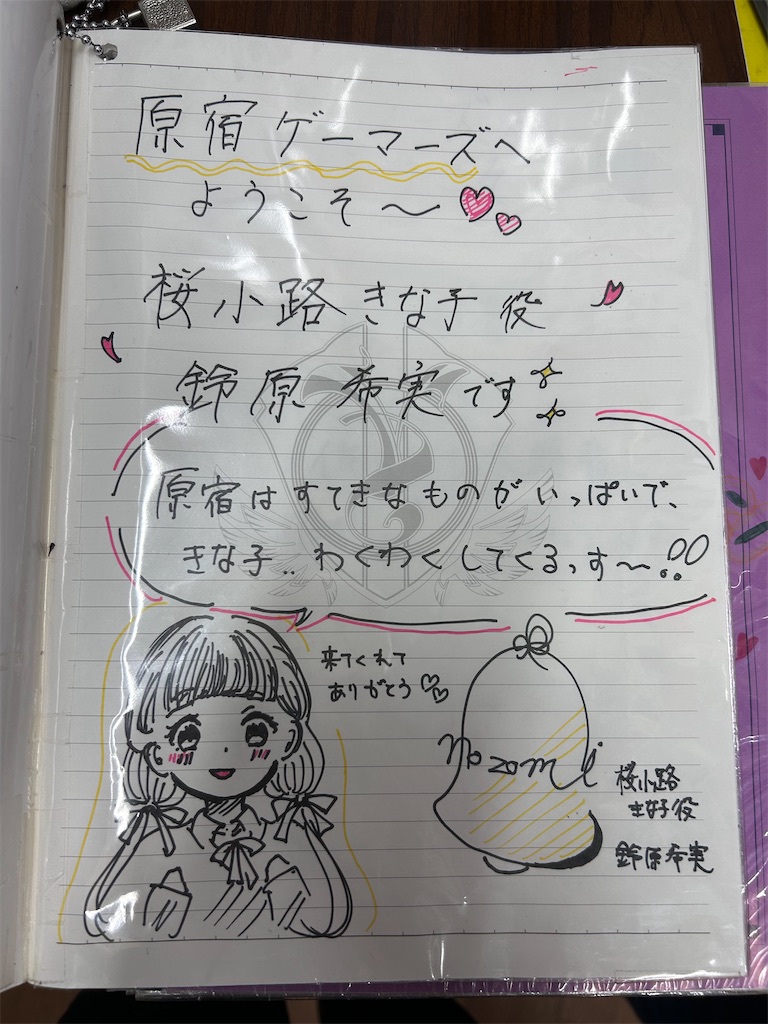 原宿ゲーマーズへ
ようこそ～
桜小路きな子役
鈴原希実です
原宿はすてきなものがいっぱいで、
きな子..わくわくしてくるっす～!!
来てくれて
ありがとう
Nozomi
桜小路
きな子役
鈴原希実